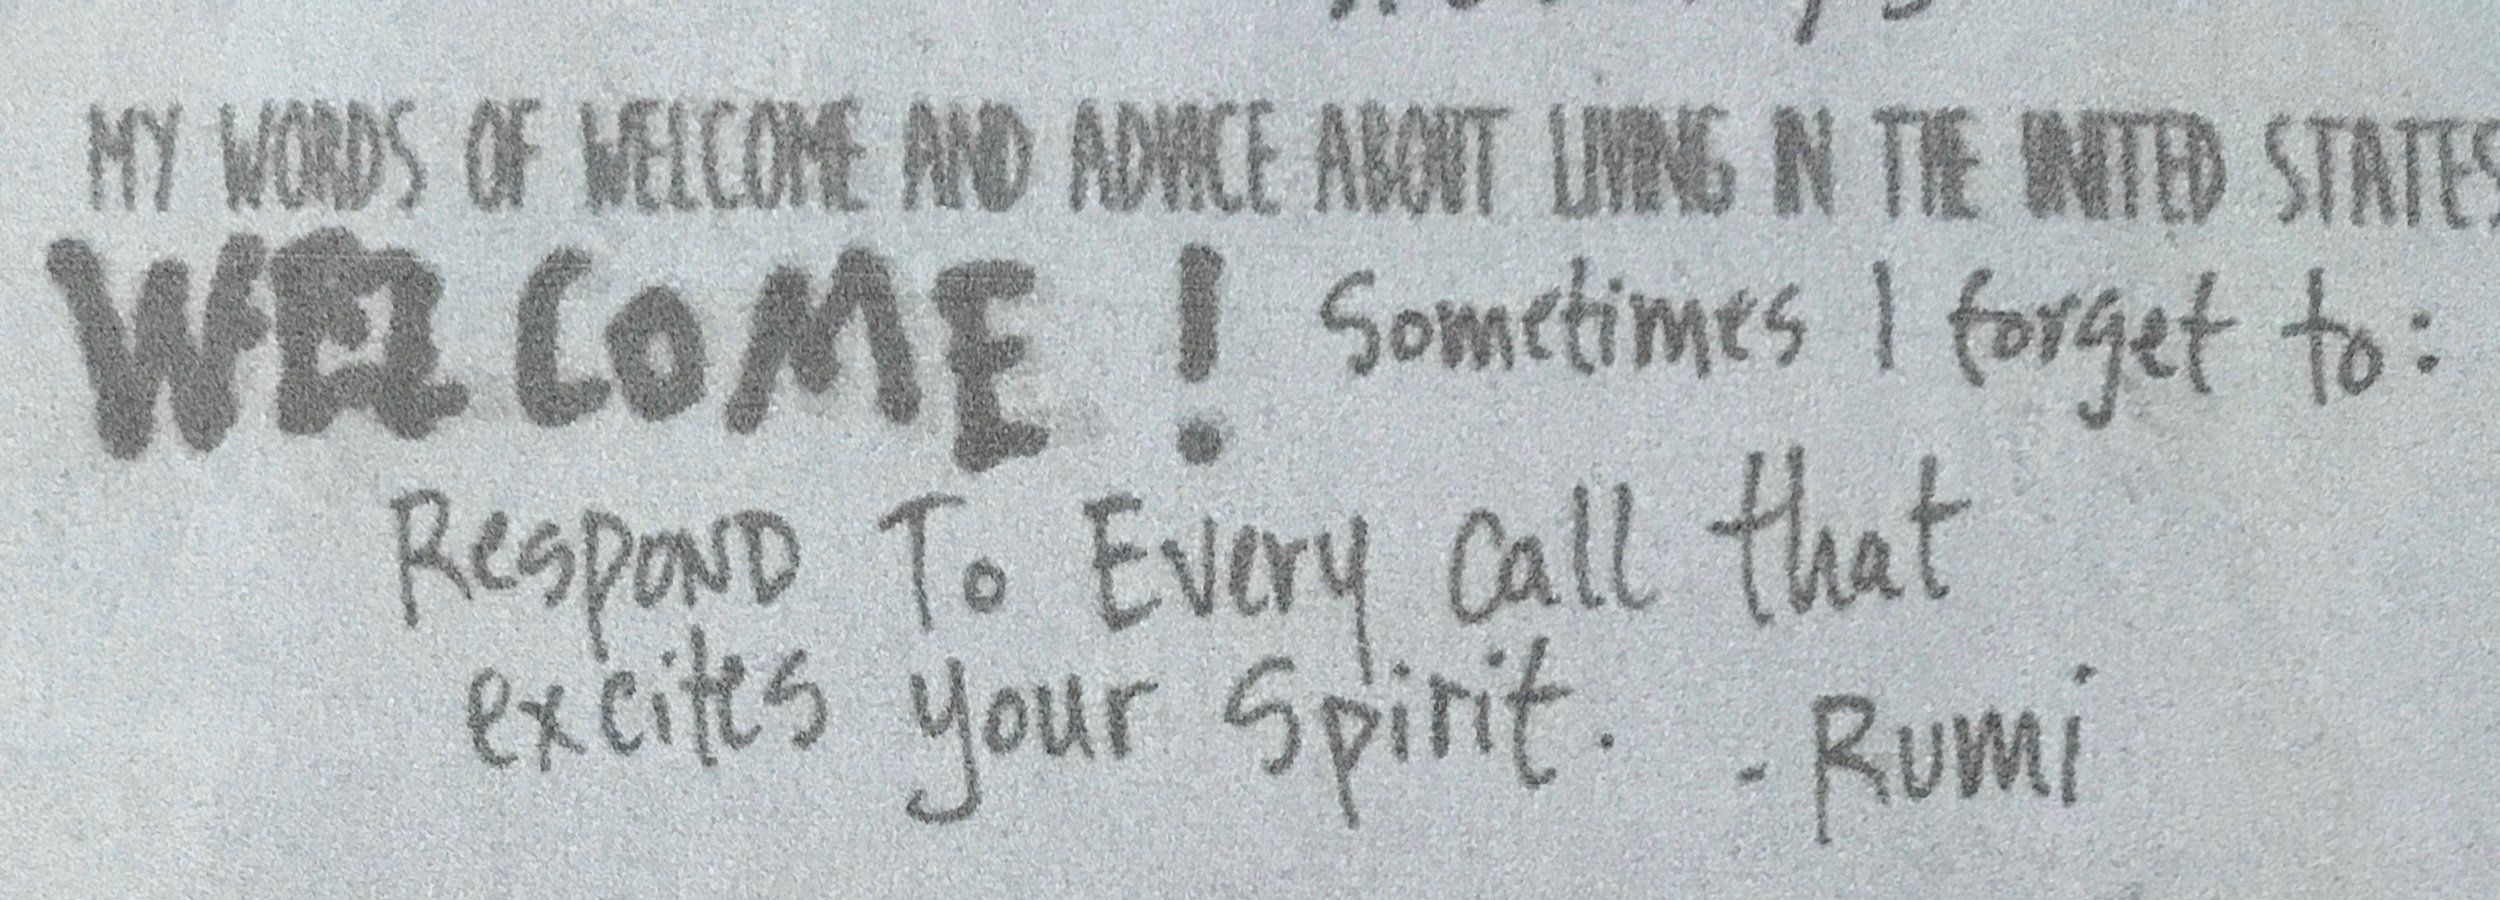 MY WORDS OF WELCOME AND ADVICE ABOUT LIVING IN THE UNITED STATES
WELCOME! Sometimes I forget to:
Respond To Every call that
excites your spirit. - Rumi